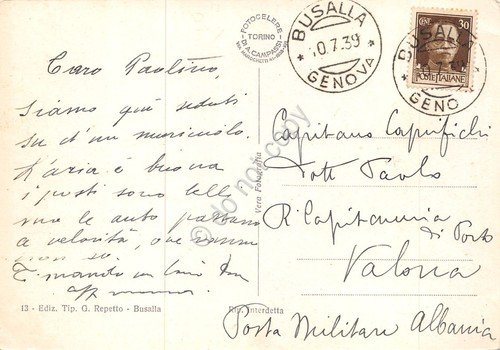 FOTOCELERE
TORINO
DI
A. CAMPASSI
BUSALLA
10.7.39
GENOVA
CENT 30
POSTE ITALIANE
BUSALLA
7.39
GENO
Caro Paolino,
Siamo qui seduti
su d'un muricciolo.
L'aria è buona
i posti sono belli
ma le auto passano
a velocità, o se vanno
Ti mando un
Vera Fotografia
Capitano
Dott Paolo
R. Capitaneria
di Porto
Valona
Posta Militare Albania
13 - Ediz. Tip. G. Repetto - Busalla
Rip. Interdetta
do not copy